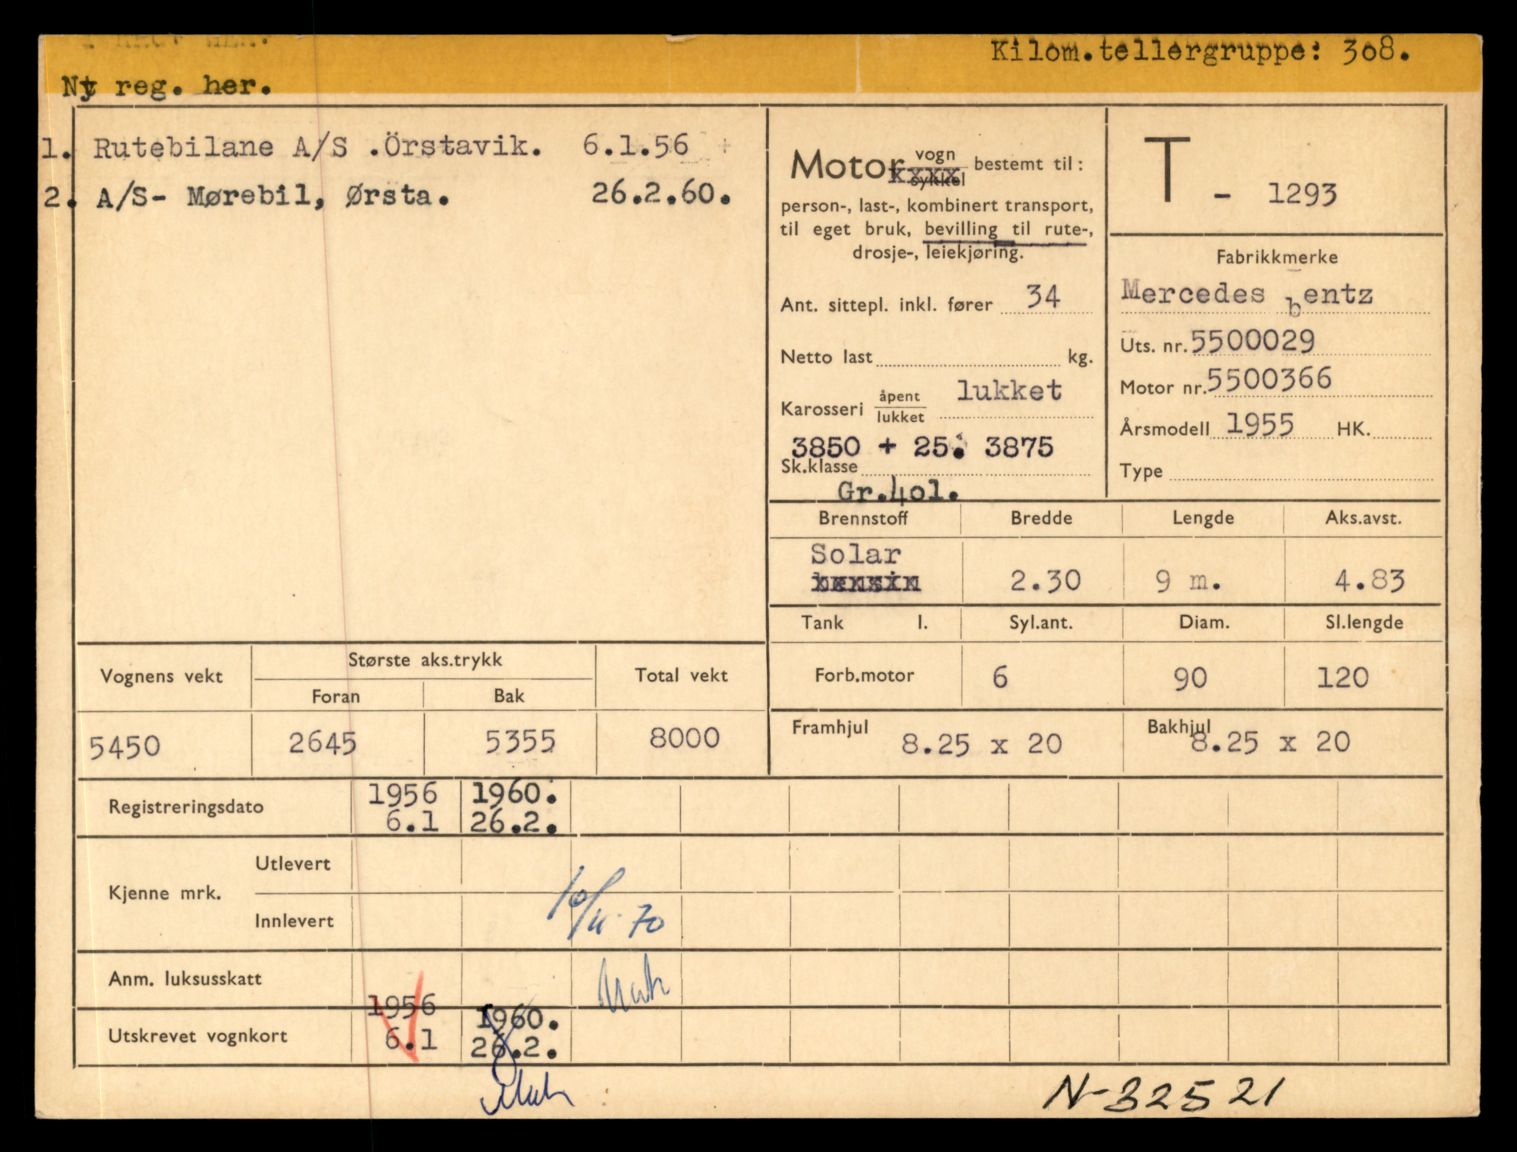 Kilom.tellergruppe: 308.
Ny reg. her.
1. Rutebilane A/S .Örstavik. 6.1.56
2. A/S- Mørebil, Ørsta. 26.2.60.
Motorvogn xxxx sykkel bestemt til:
person-, last-, kombinert transport,
til eget bruk, bevilling til rute-,
drosje-, leiekjøring.
Ant. sittepl. inkl. fører 34
Netto last kg.
Karosseri åpent lukket lukket
3850 + 25. 3875
Sk.klasse
Gr.401.
T - 1293
Fabrikkmerke
Mercedes bentz
Uts. nr. 5500029
Motor nr. 5500366
Årsmodell 1955 HK.
Type
Brennstoff Bredde Lengde Aks.avst.
Solar
bensin 2.30 9 m. 4.83
Tank l. Syl.ant. Diam. Sl.lengde
Forb.motor 6 90 120
Framhjul 8.25 x 20 Bakhjul 8.25 x 20
Vognens vekt Største aks.trykk Total vekt
Foran Bak
5450 2645 5355 8000
Registreringsdato 1956 1960.
6.1 26.2.
Utlevert
Kjenne mrk.
Innlevert 10/11-70
Anm. luksusskatt
1956 1960.
Utskrevet vognkort 6.1 26.2.
N-32521